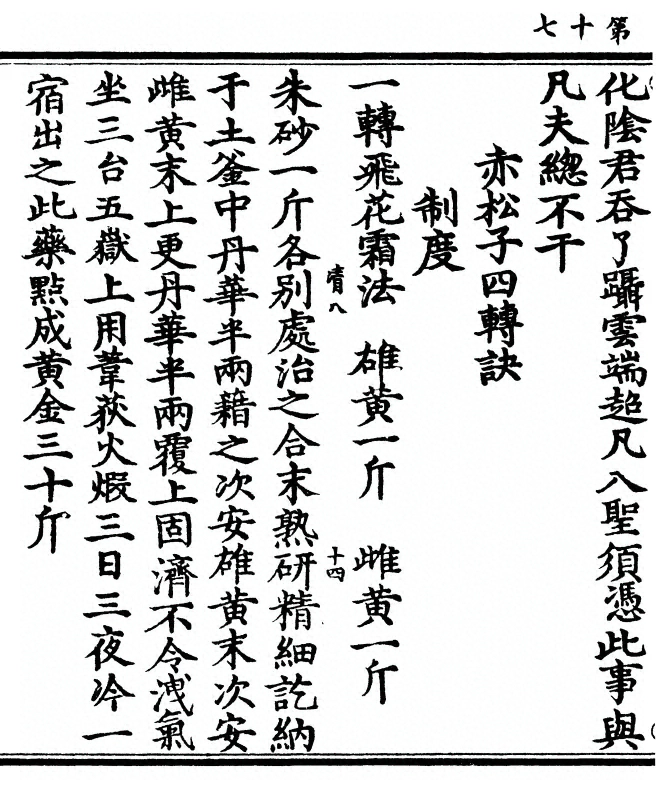 第十七
化陰君吞了躡雲端超凡入聖須憑此事與
凡夫總不干
赤松子四轉訣
制度
一轉飛花霜法　雄黃一斤　雌黃一斤
啃八　十四
朱砂一斤各別處治之合末熟研精細訖納
于土釜中丹華半兩藉之次安雄黃末次安
雌黃末上更丹華半兩覆上固濟不令洩氣
坐三台五嶽上用葦荻火煆三日三夜冷一
宿出之此藥點成黃金三十斤